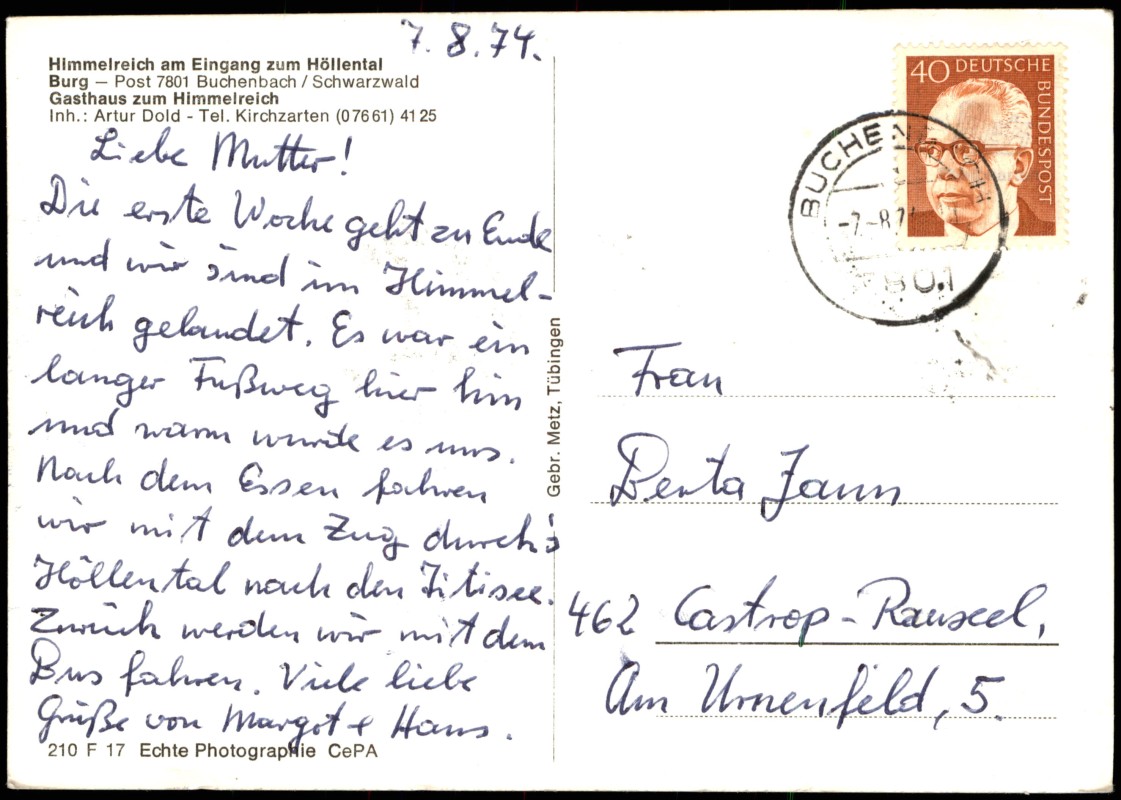 7.8.74.
Himmelreich am Eingang zum Höllental
Burg — Post 7801 Buchenbach / Schwarzwald
Gasthaus zum Himmelreich
Inh.: Artur Dold - Tel. Kirchzarten (07661) 4125
Liebe Mutter!
Die erste Woche geht zu Ende
und wir sind im Himmel-
reich gelandet. Es war ein
langer Fußweg hier hin
und warm wurde es uns.
Nach dem Essen fahren
wir mit dem Zug durch's
Höllental nach den Titisee.
Zurück werden wir mit dem
Bus fahren. Viele liebe
Grüße von Margot + Hans.
210 F 17 Echte Photographie CePA
Gebr. Metz, Tübingen
40 DEUTSCHE
BUNDESPOST
-7.-8.7
7801
Frau
Berta Jann
462 Castrop-Rauxel,
Am Urnenfeld, 5.